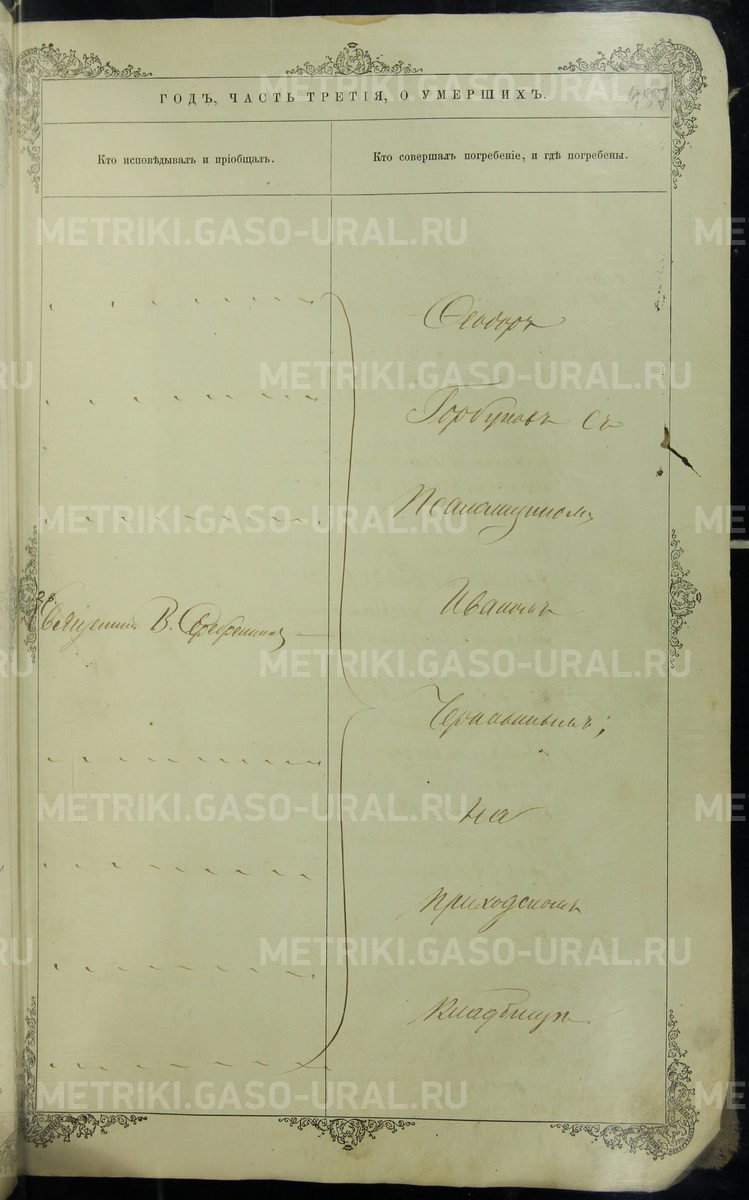 457
ГОДЪ, ЧАСТЬ ТРЕТІЯ, О УМЕРШИХЪ.
Кто исповѣдывалъ и пріобщалъ.
Кто совершалъ погребеніе, и гдѣ погребены.
METRIKI.GASO-URAL.RU
Священникъ В. Серебренниковъ
Ѳеодоръ
Горбуновъ съ
Псаломщикомъ
Иваномъ
на
приходскомъ
кладбищѣ.